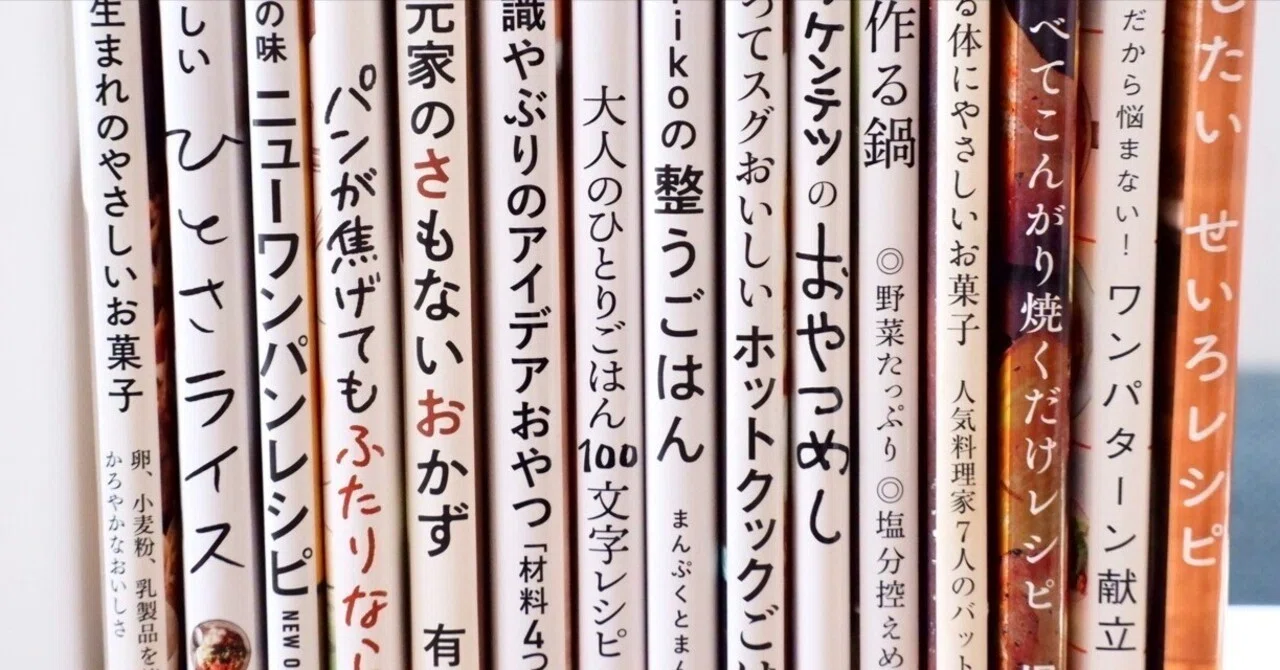 生まれのやさしいお菓子
卵、小麦粉、乳製品を
かろやかなおいしさ
しい ひとさライス
の味 ニューワンパンレシピ
NEW
パンが焦げてもふたりなら
元家のさもないおかず 有
識やぶりのアイデアおやつ「材料4つ
大人のひとりごはん100文字レシピ
rikoの整うごはん まんぷくとまん
ってスグおいしいホットクックごは
ケンテツのおやつめし
作る鍋 ◎野菜たっぷり ◎塩分控えめ
る体にやさしいお菓子 人気料理家7人のバット
べてこんがり焼くだけレシピ
だから悩まない！ワンパターン献立
したい せいろレシピ